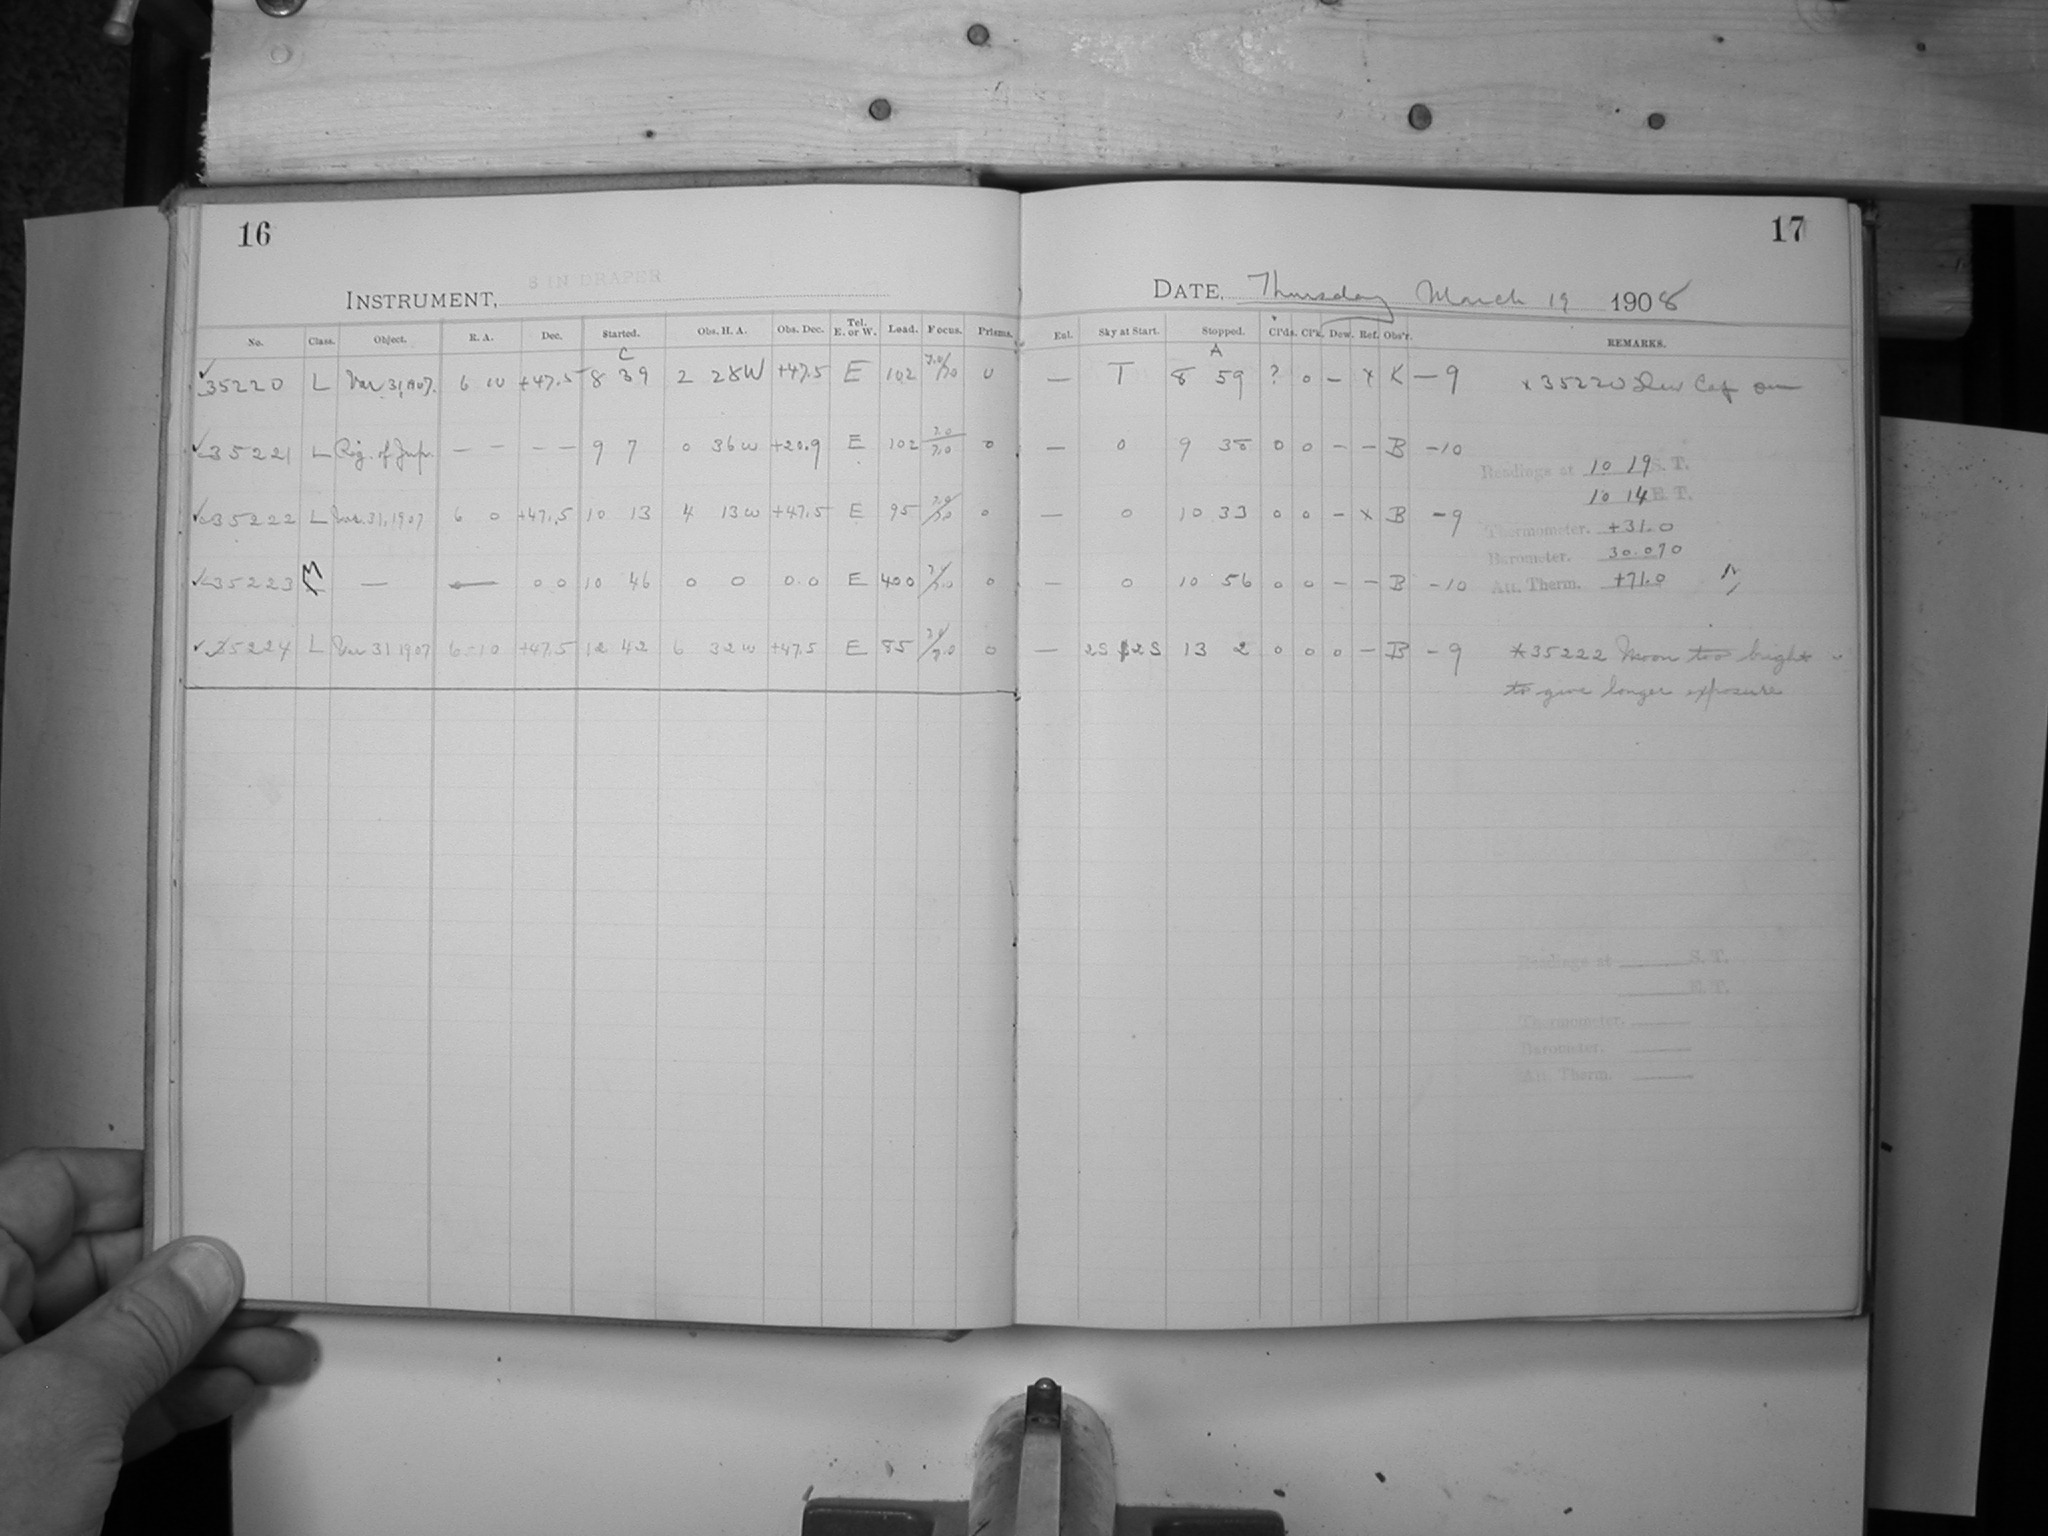 16
17
8 IN DRAPER
INSTRUMENT,
DATE, Thursday March 19 1908
No. Class. Object. R. A. Dec. Started. Obs. H. A. Obs. Dec. Tel. E. or W. Load. Focus. Prisms. Enl. Sky at Start. Stopped. Cl'ds. Cl'k. Dew. Ref. Obs'r. REMARKS.
C A
✓35220 L Var 31,1907. 6 10 +47.5 8 39 2 28W +47.5 E 102 7.0/7.0 0 — T 8 59 ? 0 – x K – 9 x 35220 Dew Cap on
✓35221 L Reg. of Jup. — — — — 9 7 0 36W +20.9 E 102 7.0/7.0 0 — 0 9 38 0 0 – – B –10
Readings at 10 19 S. T.
10 14 E. T.
✓35222 L Var. 31, 1907 6 0 +47.5 10 13 4 13W +47.5 E 95 7.0/7.0 0 — 0 10 33 0 0 – x B –9
Thermometer. +31.0
Barometer. 30.090
✓35223 M — — 0 0 10 46 0 0 0.0 E 400 7./7.0 0 — 0 10 56 0 0 – – B –10
Att. Therm. +71.0
✓35224 L Var 31 1907 6 10 +47.5 12 42 6 32W +47.5 E 85 7.0/7.0 0 — 2S 12S 13 2 0 0 0 – B – 9 *35222 Moon too bright
to give longer exposure
Readings at S. T.
E. T.
Thermometer.
Barometer.
Att. Therm.